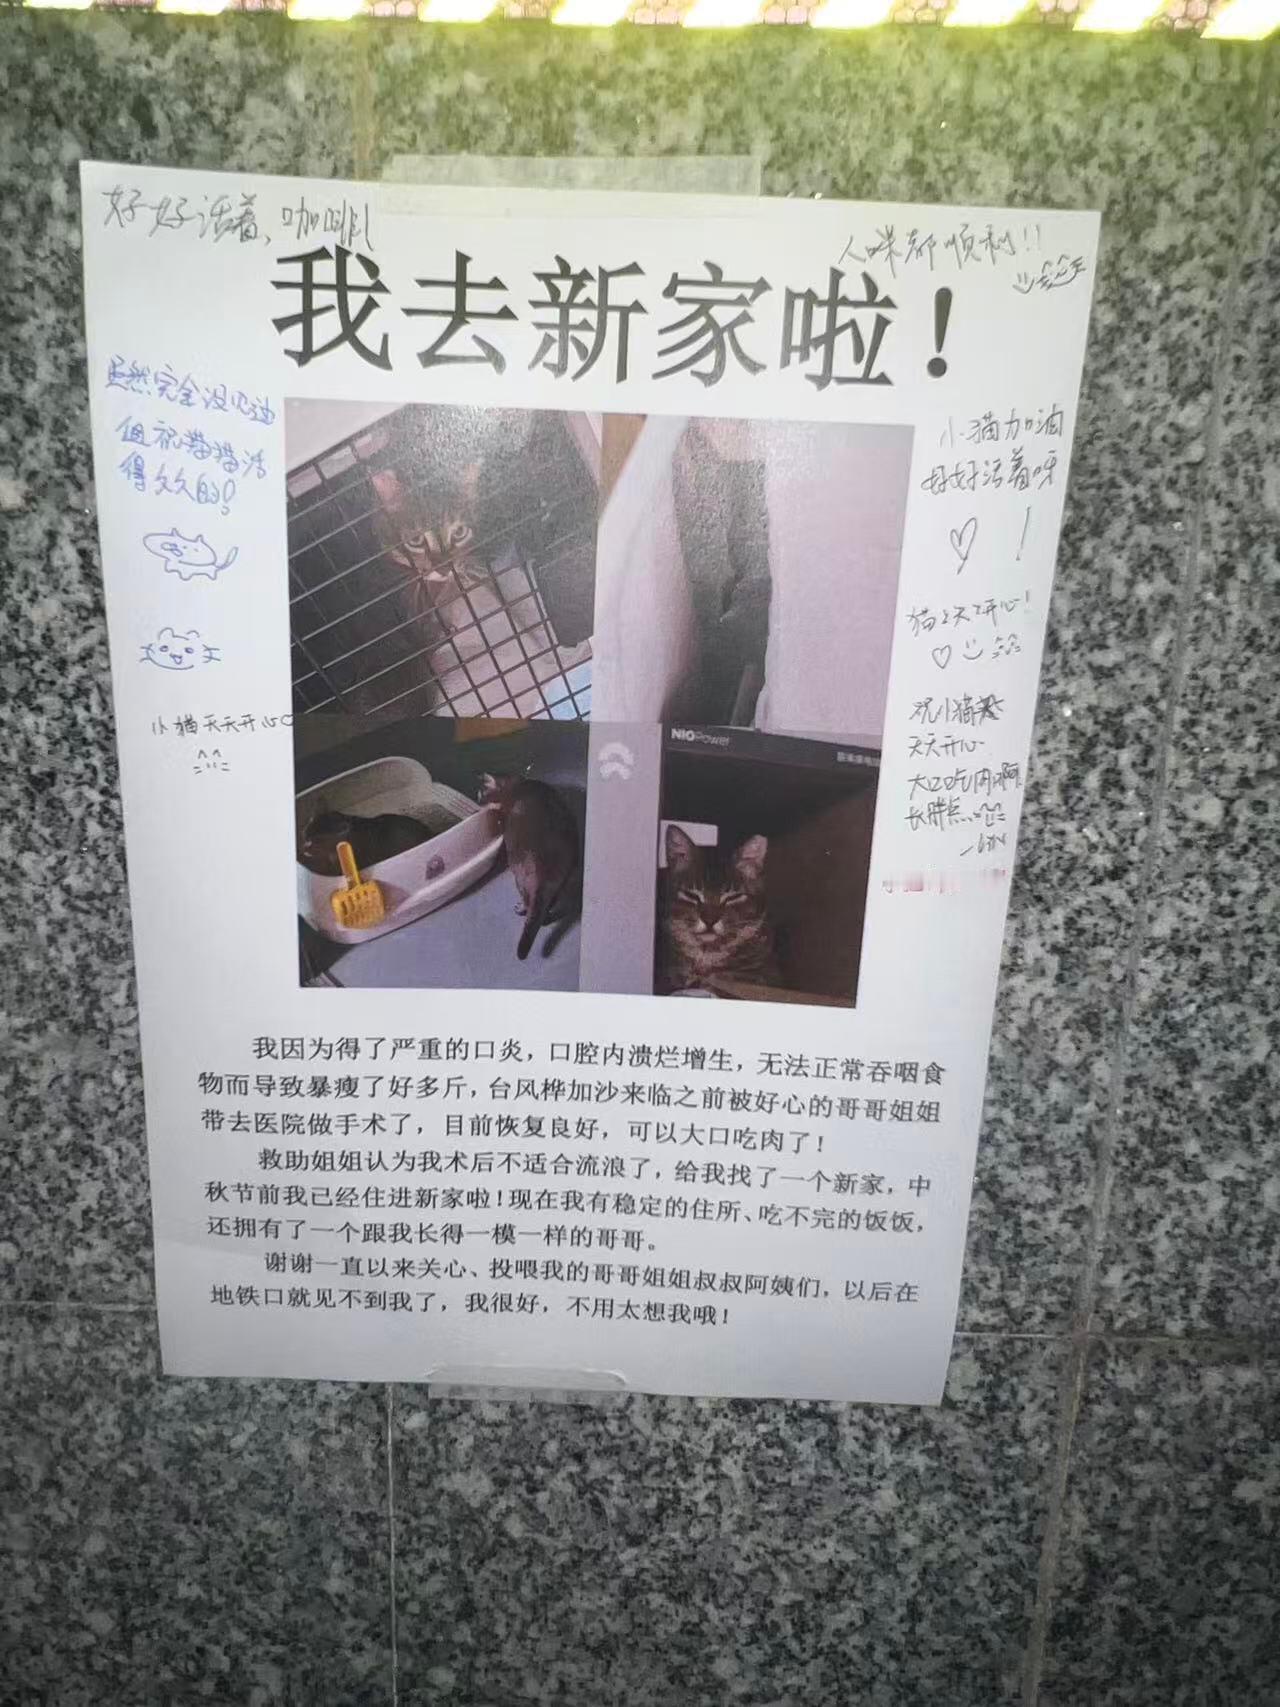 好好活着、咖啡
人咪都顺利!!
我去新家啦！
虽然完全没见过
但祝猫猫活
得久久的!
小猫天天开心
小猫加油
好好活着呀
!
猫猫天天开心!
祝小猫
天天开心
大口吃肉啊
长胖点
NIOPower
我因为得了严重的口炎，口腔内溃烂增生，无法正常吞咽食
物而导致暴瘦了好多斤，台风桦加沙来临之前被好心的哥哥姐姐
带去医院做手术了，目前恢复良好，可以大口吃肉了！
救助姐姐认为我术后不适合流浪了，给我找了一个新家，中
秋节前我已经住进新家啦！现在我有稳定的住所、吃不完的饭饭，
还拥有了一个跟我长得一模一样的哥哥。
谢谢一直以来关心、投喂我的哥哥姐姐叔叔阿姨们，以后在
地铁口就见不到我了，我很好，不用太想我哦！